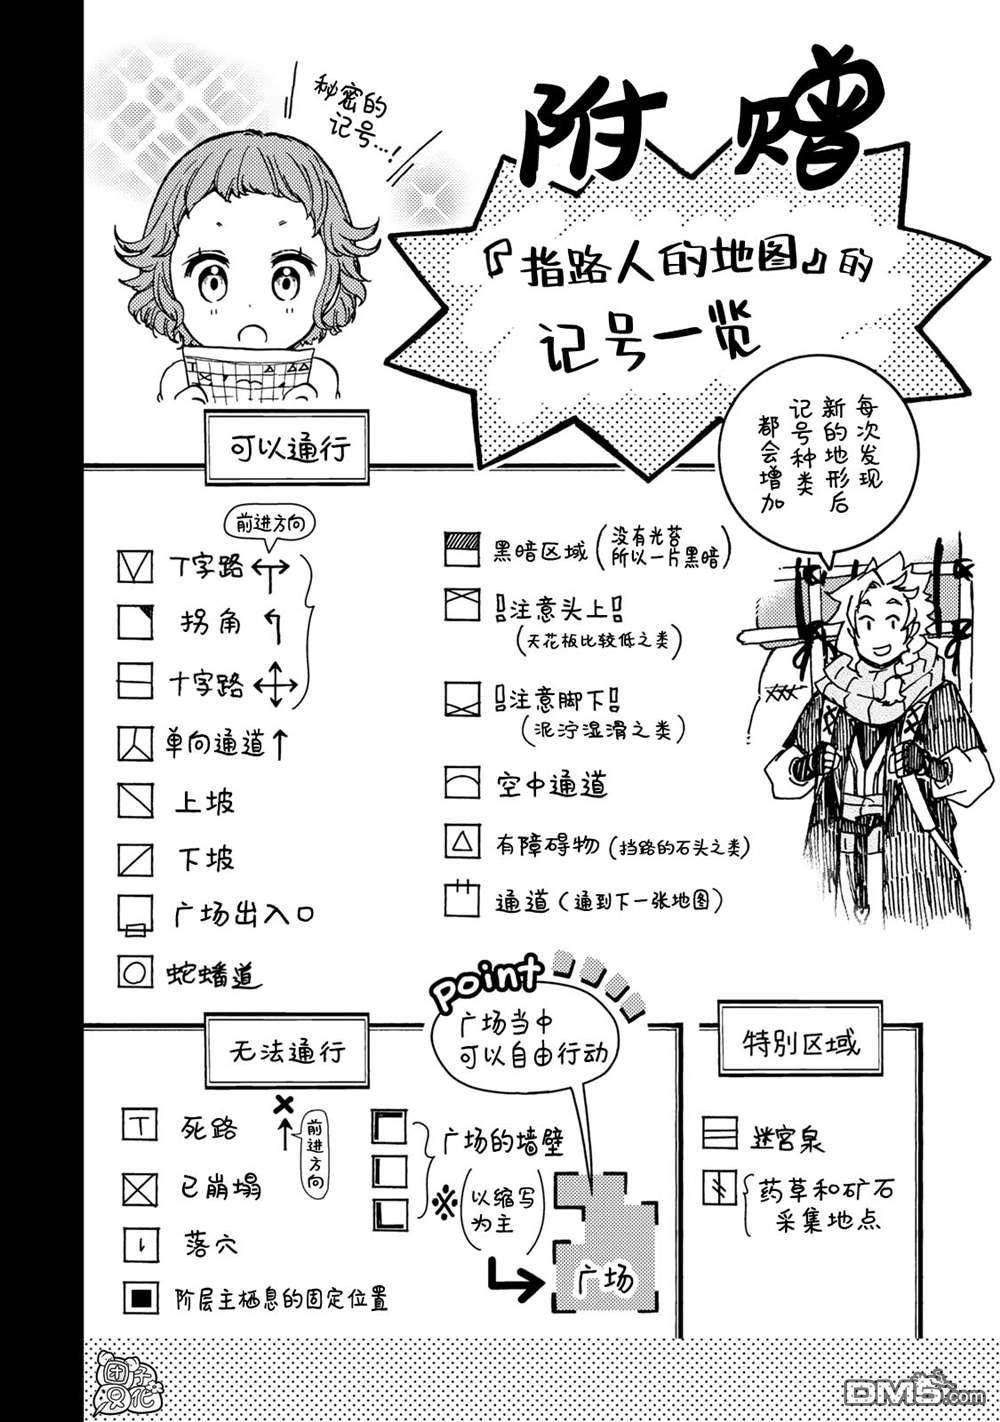 附赠
『指路人的地图』的
记号一览
秘密的
记号…!
每次发现
新的地形后
记号种类
都会增加
可以通行
前进方向
T字路
拐角
十字路
单向通道
上坡
下坡
广场出入口
蛇蟠道
黑暗区域(没有光苔
所以一片黑暗)
!注意头上!
(天花板比较低之类)
!注意脚下!
(泥泞湿滑之类)
空中通道
有障碍物(挡路的石头之类)
通道(通到下一张地图)
无法通行
死路
前进方向
已崩塌
落穴
阶层主栖息的固定位置
广场的墙壁
※(以缩写
为主)
Point
广场当中
可以自由行动
广场
特别区域
迷宫泉
药草和矿石
采集地点
团子
汉化
DM5.com